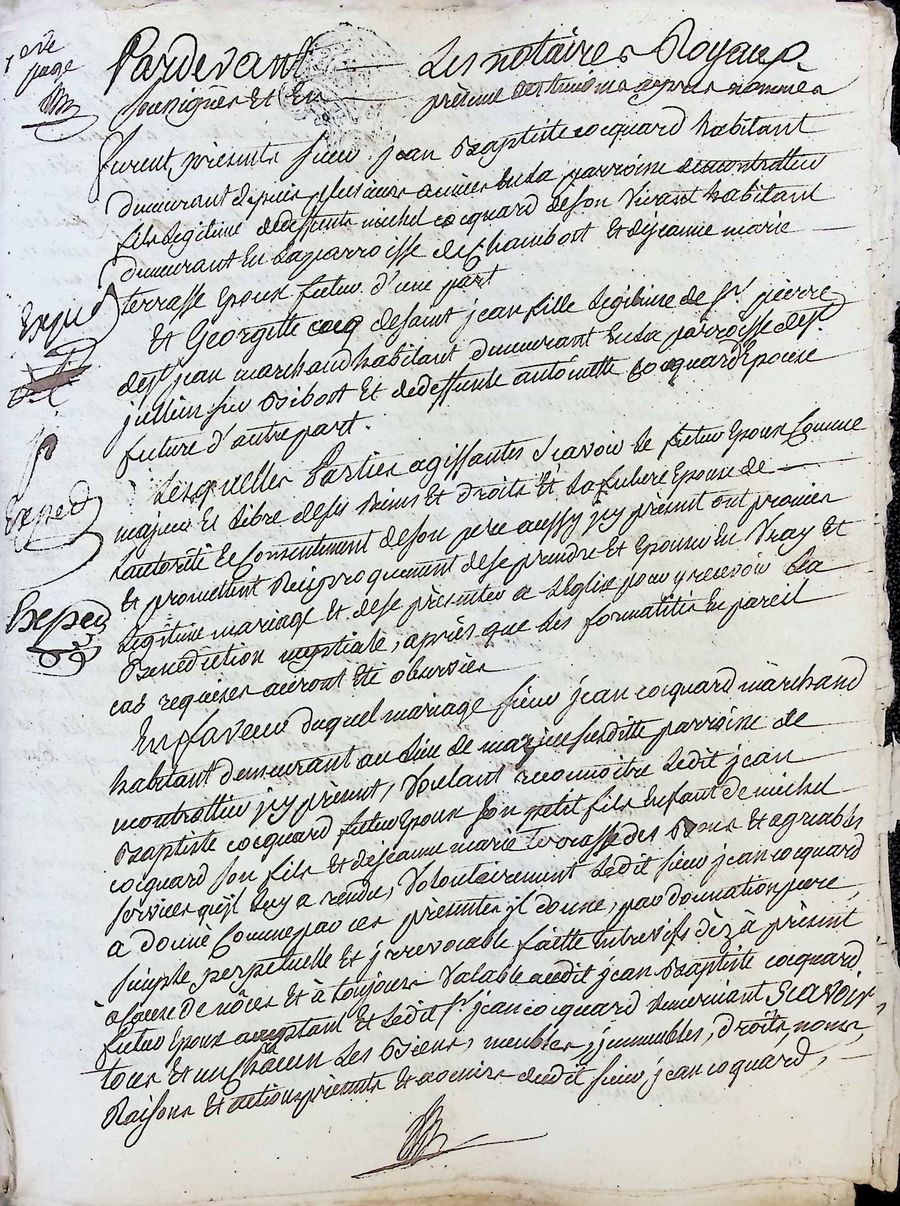 1ere
page
Pardevant Les notaires Royaux
soussignés Et En présence des témoins après nommés
furent présents sieur jean Baptiste cocquard habitant
demeurant depuis plusieurs années En la parroisse de montrottier
fils Légitime de deffunts michel cocquard de son Vivant habitant
demeurant En La parroisse de Chambost Et de jeanne marie
terrasse Epoux futur d'une part
Et Georgette cocq desaint jean fille Légitime de Sr. pierre
de st. jean marchand habitant demeurant En la parroisse de st.
jullien sur Bibost Et de deffunte antoinette cocquard Epouse
future d'autre part.
Lesquelles Parties agissantes Scavoir Le futur Epoux Comme
majeur Et Libre de ses Biens Et Droits Et La future Epouse de
Lautorité Et Consentement de son pere aussy jcy présent ont promis
Et promettent Réciproquement de se prendre Et Epouser En Vray Et
Légitime mariage Et de se présenter a LEglise pour y recevoir La
Bénédiction nuptiale, après que Les formalités En pareil
cas requises auront Eté observées
En faveur duquel mariage sieur jean cocquard marchand
habitant demeurant au Lieu de susditte parroisse de
montrottier jcy présent, Voulant reconnoitre Ledit jean
Baptiste cocquard futur Epoux Son petit fils Enfant de michel
cocquard Son fils Et de jeanne marie terrasse des Bons Et agréables
services qu'jl Luy a rendu, Volontairement Ledit sieur jean cocquard
a donné Comme par ces présentes jl donne, par donnation pure
simple perpetuelle Et jrrevocable faitte Entrevifs dèz à présent
à Cause de nôces Et à toujours Valable audit jean Baptiste cocquard
futur Epoux acceptant Et Ledit Sr. jean cocquard remerciant Scavoir
tous Et un Châcun Les Biens, meubles, jmmeubles, droits, noms,
Raisons Et actions présents Et avenirs dudit sieur jean cocquard,
Exped
Exped
Exped